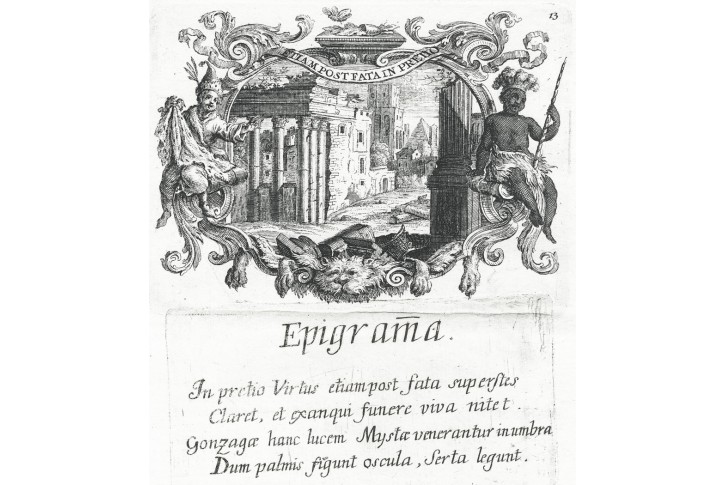 13
ETIAM POST FATA IN PRETIO
Epigram̃a.
In pretio Virtus etiam post fata superstes
Claret, et exanqui funere viva nitet.
Gonzagæ hanc lucem Mystæ venerantur in umbra
Dum palmis figunt oscula, Serta legunt.